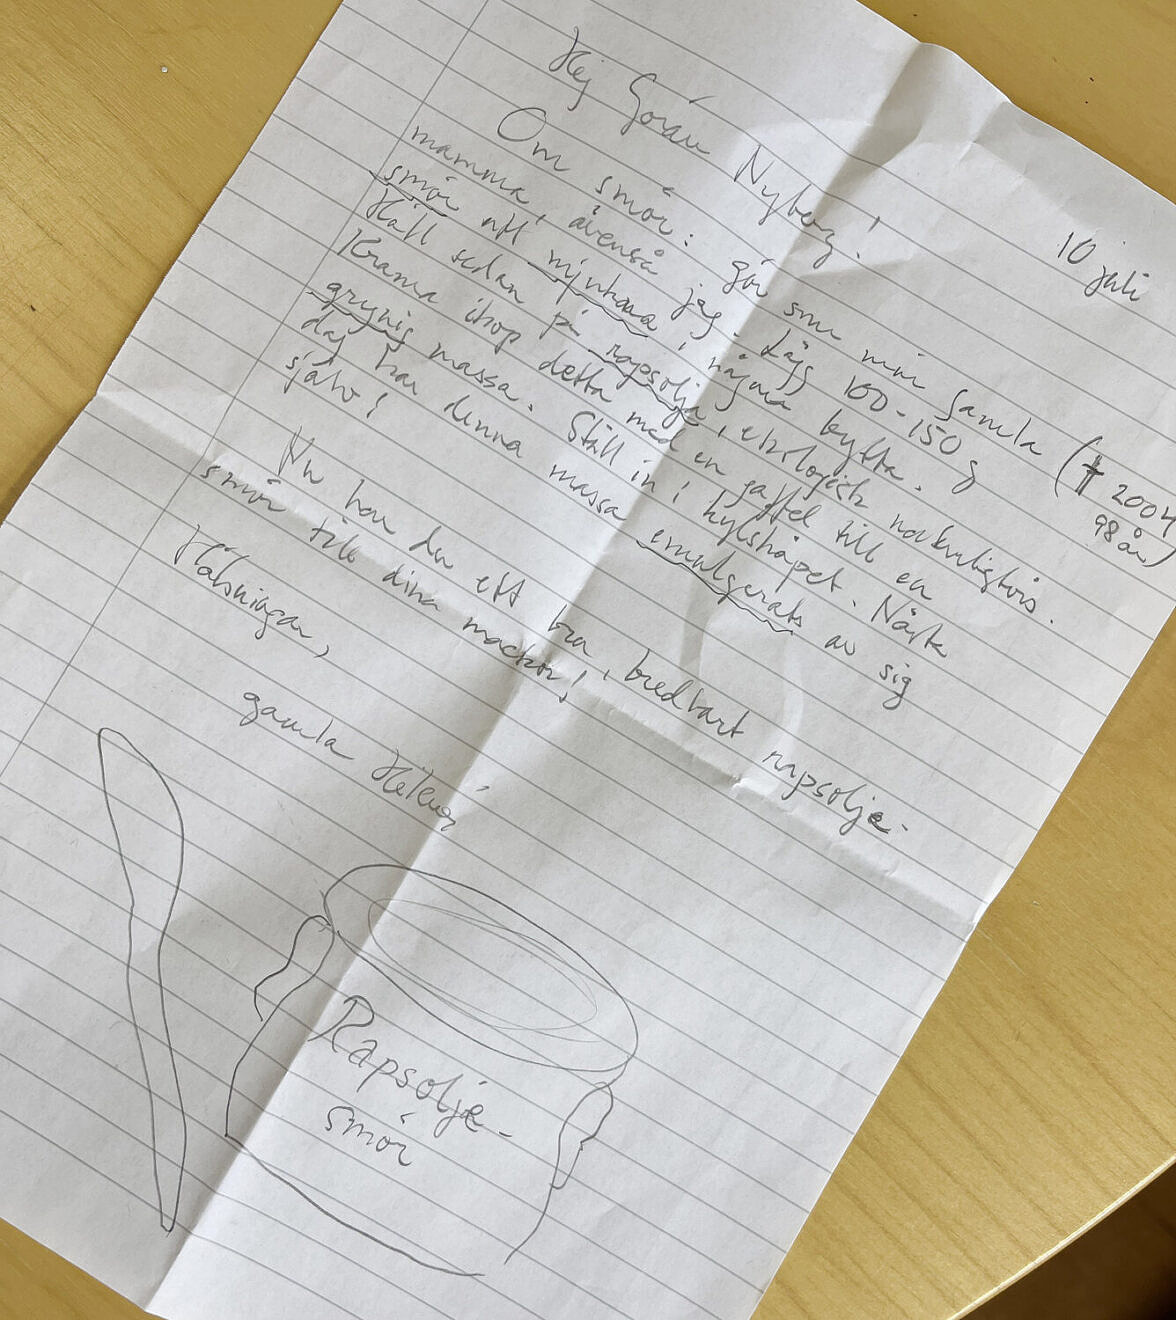 10 juli
Hej Göran Nyberg!
Om smör: gör som min gamla († 2004
98 år)
mamma, ävenså jag. Lägg 100-150 g
smör att mjukna i någon bytta.
Häll sedan på rapsolja, ekologisk naturligtvis.
Krama ihop detta med en gaffel till en
grynig massa. Ställ in i kylskåpet. Nästa
dag har denna massa emulgerats av sig
själv!
Nu har du ett bra, bredbart rapsolje-
smör till dina mackor!
Hälsningar,
gamla
Rapsolje-
smör